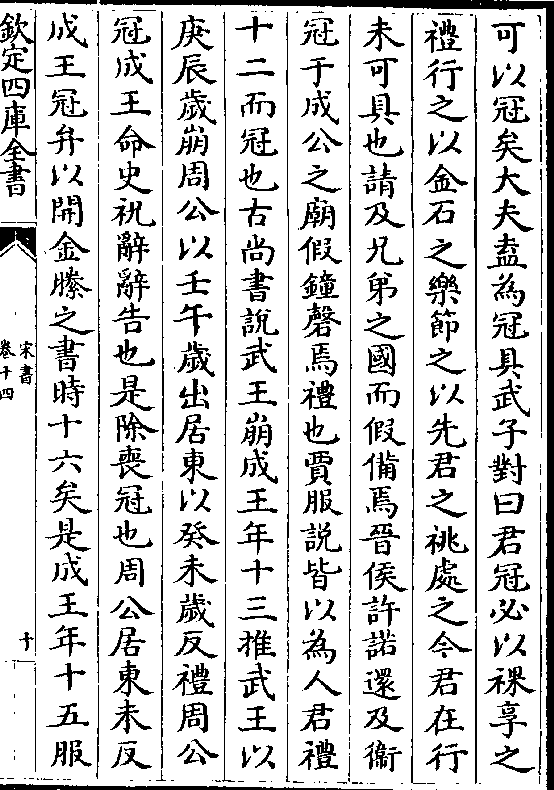 可以冠矣大夫盍為冠具武子對曰君冠必以祼享之
禮行之以金石之樂節之以先君之祧處之今君在行
未可具也請及兄弟之國而假備焉晉侯許諾還及衞
冠于成公之廟假鐘磬焉禮也賈服說皆以為人君禮
十二而冠也古尚書說武王崩成王年十三推武王以
庚辰歲崩周公以壬午歲出居東以癸未歲反禮周公
冠成王命史祝辭辭告也是除喪冠也周公居東未反
成王冠弁以開金縢之書時十六矣是成王年十五服
欽定四庫全書
宋書
卷十四
十